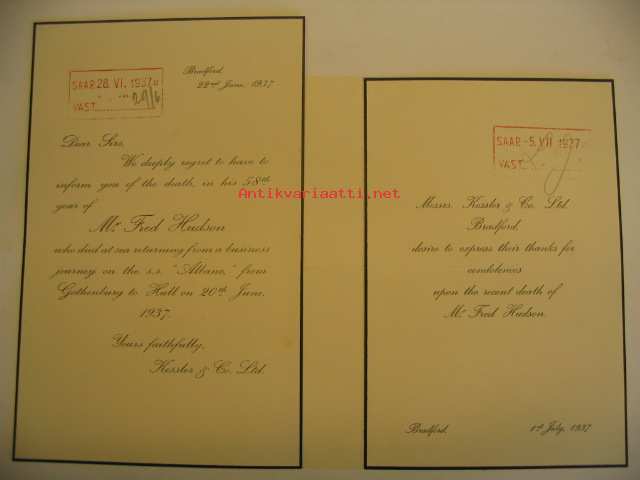 Bradford,
22nd June, 1937
SAAP. 28. VI. 1937
VAST. 29/6
Dear Sirs,
We deeply regret to have to
inform you of the death, in his 58th
year of
Mr Fred Hudson
who died at sea returning from a business
journey on the s.s. "Albano," from
Gothenburg to Hull on 20th June,
1937.
Yours faithfully,
Kessler & Co. Ltd.
Antikvariaatti.net
SAAP. -5. VII 1937
VAST.
Messrs. Kessler & Co. Ltd.
Bradford,
desire to express their thanks for
condolences
upon the recent death of
Mr Fred Hudson.
Bradford,
1st July, 1937